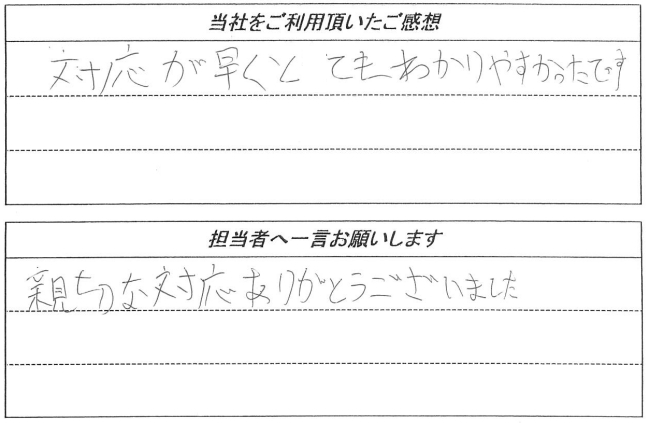 当社をご利用頂いたご感想
対応が早くとてもわかりやすかったです
担当者へ一言お願いします
親切な対応ありがとうございました